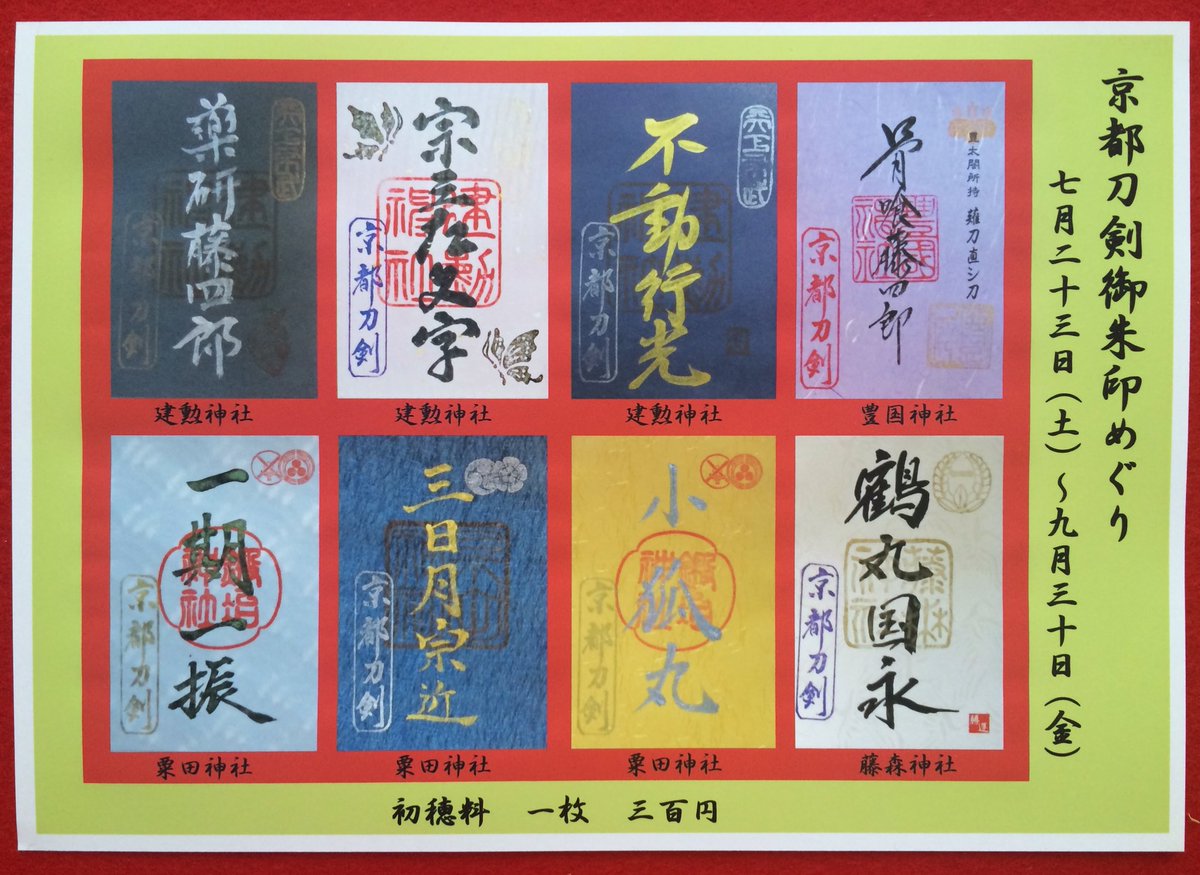 京都刀剣御朱印めぐり
七月二十三日（土）～九月三十日（金）
豊太閤所持 薙刀直シ刀
骨喰藤四郎
豊国
京都刀剣
豊国神社
天下布武
不動行光
建勲
京都刀剣
建勲神社
宗三左文字
建勲
神社
京都刀剣
建勲神社
天下布武
薬研藤四郎
建勲
神社
京都刀剣
建勲神社
鶴丸国永
藤森
神社
京都刀剣
藤森神社
小狐丸
鍛冶
神社
京都刀剣
粟田神社
三日月宗近
京都刀剣
粟田神社
一期一振
鍛冶
神社
京都刀剣
粟田神社
初穂料 一枚 三百円